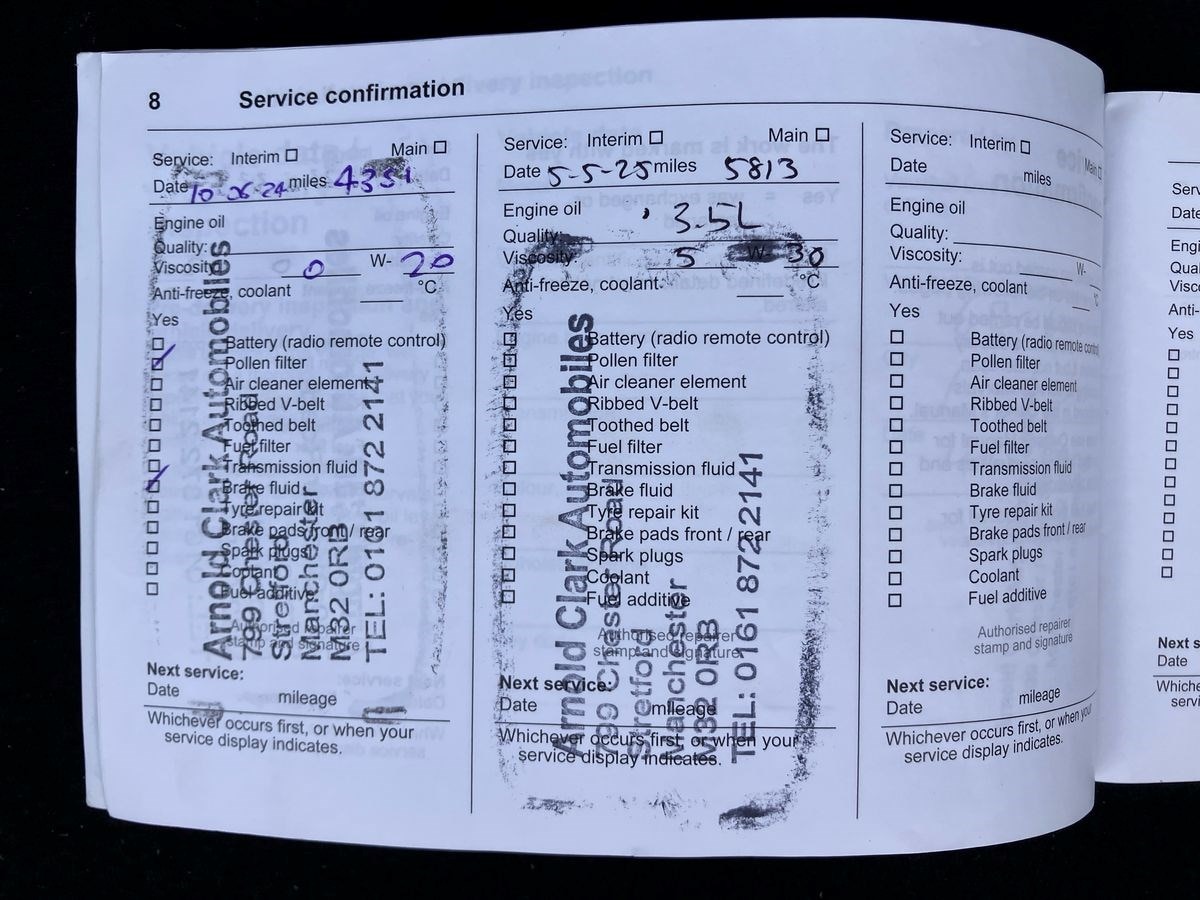 8 Service confirmation
Service: Interim ☐ Main ☐
Date 10-06-24 miles 4351
Engine oil
Quality:
Viscosity 0 W- 20
Anti-freeze, coolant °C
Yes
Battery (radio remote control)
Pollen filter
Air cleaner element
Ribbed V-belt
Toothed belt
Fuel filter
Transmission fluid
Brake fluid
Tyre repair kit
Brake pads front / rear
Spark plugs
Coolant
Fuel additive
Authorised repairer
stamp and signature
Arnold Clark Automobiles
799 Chester Road
Stretford
Manchester
M32 0RB
TEL: 0161 872 2141
Next service:
Date mileage
Whichever occurs first, or when your
service display indicates.
Service: Interim ☐ Main ☐
Date 5-5-25 miles 5813
Engine oil 3.5L
Quality:
Viscosity: 5 W- 30
Anti-freeze, coolant: °C
Yes
Battery (radio remote control)
Pollen filter
Air cleaner element
Ribbed V-belt
Toothed belt
Fuel filter
Transmission fluid
Brake fluid
Tyre repair kit
Brake pads front / rear
Spark plugs
Coolant
Fuel additive
Authorised repairer
stamp and signature
Arnold Clark Automobiles
799 Chester Road
Stretford
Manchester
M32 0RB
TEL: 0161 872 2141
Next service:
Date mileage
Whichever occurs first, or when your
service display indicates.
Service: Interim ☐ Main ☐
Date miles
Engine oil
Quality:
Viscosity: W-
Anti-freeze, coolant °C
Yes
Battery (radio remote control)
Pollen filter
Air cleaner element
Ribbed V-belt
Toothed belt
Fuel filter
Transmission fluid
Brake fluid
Tyre repair kit
Brake pads front / rear
Spark plugs
Coolant
Fuel additive
Authorised repairer
stamp and signature
Next service:
Date mileage
Whichever occurs first, or when your
service display indicates.
Serv
Date
Engi
Qua
Visc
Anti-
Yes
Next s
Date
Whiche
servi